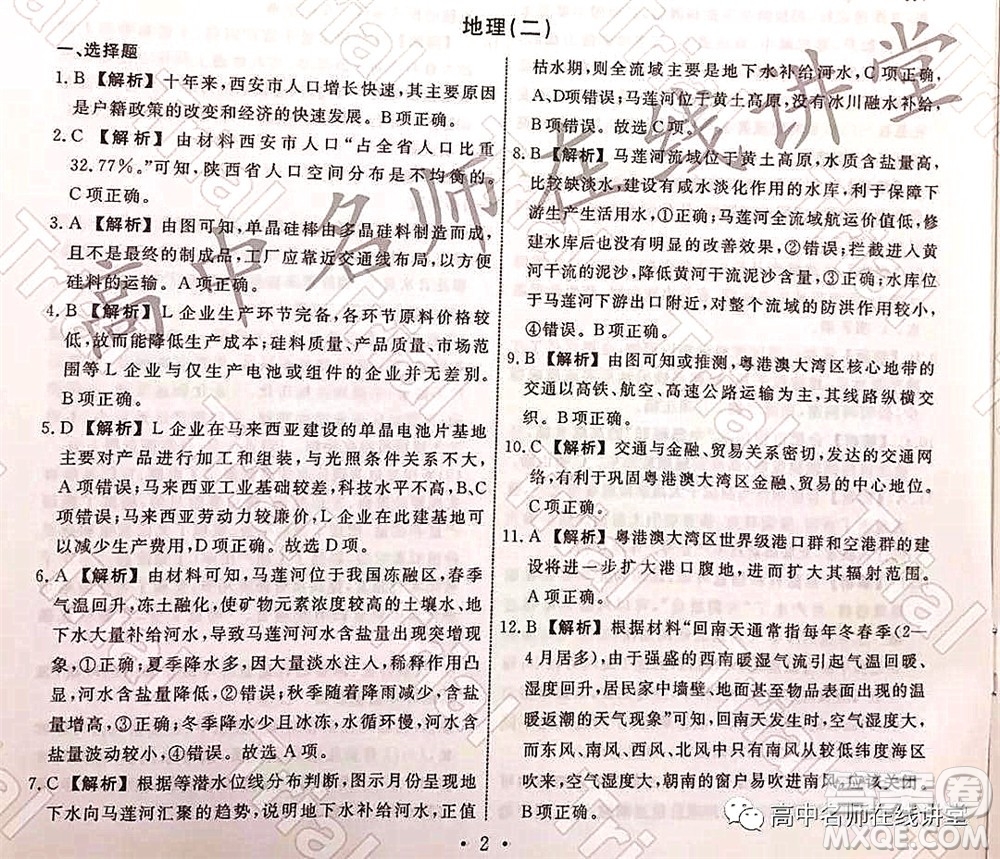 地理(二)
一、选择题
1. B 【解析】 十年来,西安市人口增长快速,其主要原因
是户籍政策的改变和经济的快速发展。B项正确。
2. C 【解析】 由材料西安市人口“占全省人口比重
32.77%”可知,陕西省人口空间分布是不均衡的。
C项正确。
3. A 【解析】由图可知,单晶硅棒由多晶硅料制造而成,
且不是最终的制成品,工厂应靠近交通线布局,以方便
硅料的运输。A项正确。
4. B 【解析】L企业生产环节完备,各环节原料价格较
低,故而能降低生产成本;硅料质量、产品质量、市场范
围等L企业与仅生产电池或组件的企业并无差别。
B项正确。
5. D 【解析】L企业在马来西亚建设的单晶电池片基地
主要对产品进行加工和组装,与光照条件、市场关系不
大,A项错误;马来西亚工业基础较差,科技水平不高,B、C
项错误;马来西亚劳动力较廉价,L企业在此建基地可
以减少生产费用,D项正确。故选D项。
6. A 【解析】由材料可知,马莲河位于我国冻融区,春季
气温回升,冻土融化,使矿物元素浓度较高的土壤水、地
下水大量补给河水,导致马莲河河水含盐量出现突增
现象,①正确;夏季降水较多,大量淡水注入,稀释作用强
烈,河水含盐量降低,②错误;秋季随着气温降低,含盐量
升高,③正确;冬季降水少且冰冻,水循环慢,河水含
盐量波动较小,④错误。故选A项。
7. C 【解析】根据等潜水位线分布判断,图示月份呈现地
下水向马莲河汇聚的趋势,说明地下水补给河水,正值
枯水期,则全流域主要是地下水补给河水,C项正确,
A、D项错误。马莲河位于黄土高原,没有冰川融水补给,
B项错误。故选C项。
8. B 【解析】马莲河流域位于黄土高原,水质含盐量高,
比较缺淡水,建设有咸水淡化作用的水库,利于保障下
游生产生活用水,①正确;马莲河全流域航运价值低,修
建水库后也没有明显的改善效果,②错误;拦截进入黄
河干流的泥沙,降低黄河干流泥沙含量,③正确;水库位
于马莲河下游出口附近,对整个流域的防洪作用不大,
④错误。B项正确。
9. B 【解析】由图可知或推测,粤港澳大湾区核心地带的
交通以高铁、航空、高速公路运输为主,其线路纵横交
织。B项正确。
10. C 【解析】交通与金融、贸易关系密切,发达的交通网
络,有利于巩固粤港澳大湾区金融、贸易的中心地位。
C项正确。
11. A 【解析】粤港澳大湾区世界级港口群和空港群的建
设将进一步扩大港口腹地,从而扩大经济辐射范围。
A项正确。
12. B 【解析】根据材料“回南天通常指每年冬春季(2—
4月居多),由于强盛的西南暖湿气流使气温回暖、
湿度加大,居民家中墙壁、地面甚至物品表面出现的
暖返潮的天气现象”可知,回南天发生时,空气湿度大,
而东风、西风、北风都不及来自广阔南海的南风从海上
吹来,空气湿度大,朝南的窗户易吹进南风,应该关闭。
· 2 ·
高中名师在线讲堂
Trial
高中名师在线讲堂
MXQE.COM